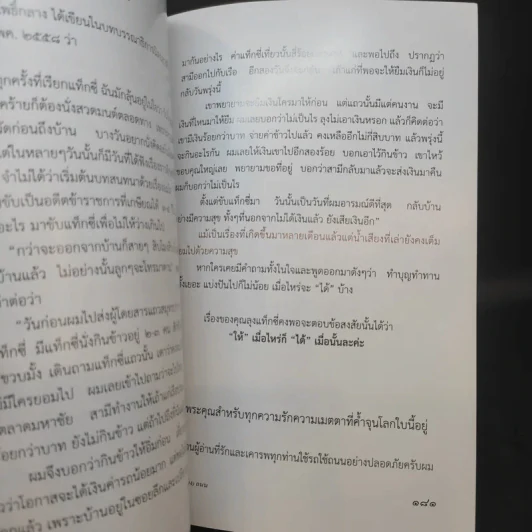 โพธิ์กลาง ได้เขียนในบทบรรณาธิการ
พ.ค. ๒๕๕๘ ว่า
ทุกครั้งที่เรียกแท็กซี่ ฉันมักลุ้นอยู่ใน
คร้ายก็ต้องนั่งสวดมนต์ตลอดทาง
ก่อนถึงบ้าน บางวันอยาก
แต่ในหลายๆวันนั้นก็มีวันที่ได้ฟังเรื่อง
จำไม่ได้ว่าเริ่มต้นบทสนทนาด้วยเรื่อง
ขับเป็นอดีตข้าราชการที่เกษียณได้
อะไร มาขับแท็กซี่เพื่อไม่ให้ว่างเกินไป
"กว่าจะออกจากบ้านก็สายๆ
บ้านแล้ว ไม่อย่างนั้นลูกๆจะโทรมา
าต่อว่า
"วันก่อนผมไปส่งผู้โดยสารแถวสมุทร
แท็กซี่ มีแท็กซี่นั่งกินข้าวอยู่ ๒-๓ คน
ขวบมั้ง เดินถามแท็กซี่แถวนั้น
มีใครยอมไป ผมเลยเข้าไปถามว่าจะไปไหน
ตลาดมหาชัย สามีทำงานให้เถ้าแก่เรือ
ร้อยกว่าบาท ยังไม่กินข้าว แต่ถ้าไปถึง
ผมจึงบอกว่ากินข้าวให้อิ่มก่อน
ว่าโอกาสจะได้เงินค่ารถน้อยมาก
แล้ว เพราะบ้านอยู่ในซอยลึกและ
มากันอย่างไร ค่าแท็กซี่เที่ยวนั้นสี่ร้อย และพอไปถึง ปรากฏว่า
สามีออกไปกับเรือ อีกสองวัน เถ้าแก่ที่พอจะให้ยืมเงินก็ไม่อยู่
กลับวันพรุ่งนี้
เขาพยายามจะยืมเงินใครมาให้ก่อน แต่แถวนั้นมีแต่คนงาน จะมี
เงินที่ไหนมาให้ยืม ผมเลยบอกว่าไม่เป็นไร ลุงไม่เอาเงินหรอก แล้วก็คิดต่อว่า
เขามีเงินร้อยกว่าบาท จ่ายค่าข้าวไปแล้ว คงเหลืออีกไม่กี่สิบบาท แล้วพรุ่งนี้
จะกินอะไรกัน ผมเลยให้เงินเขาไปอีกสองร้อย บอกเอาไว้กินข้าว เขาไหว้
ขอบคุณใหญ่เลย พยายามขอที่อยู่ บอกว่าสามีกลับมาแล้วจะส่งเงินมาคืน
ผมก็บอกว่าไม่เป็นไร
ตั้งแต่ขับแท็กซี่มา วันนั้นเป็นวันที่ผมอารมณ์ดีที่สุด กลับบ้าน
อย่างมีความสุข ทั้งๆที่นอกจากไม่ได้เงินแล้ว ยังเสียเงินอีก"
แม้เป็นเรื่องที่เกิดขึ้นมาหลายเดือนแล้วแต่น้ำเสียงที่เล่ายังคงเต็ม
ยมไปด้วยความสุข
หากใครเคยมีคำถามทั้งในใจและพูดออกมาดังๆว่า ทำบุญทำทาน
ตั้งเยอะ แบ่งปันไปก็ไม่น้อย เมื่อไหร่จะ "ได้" บ้าง
เรื่องของคุณลุงแท็กซี่คงพอจะตอบข้อสงสัยนั้นได้ว่า
"ให้" เมื่อไหร่ก็ "ได้" เมื่อนั้นละค่ะ
พระคุณสำหรับทุกความรักความเมตตาที่ค้ำจุนโลกใบนี้อยู่
ผู้อ่านที่รักและเคารพทุกท่านใช้รถใช้ถนนอย่างปลอดภัยครับผม
๑๘๑